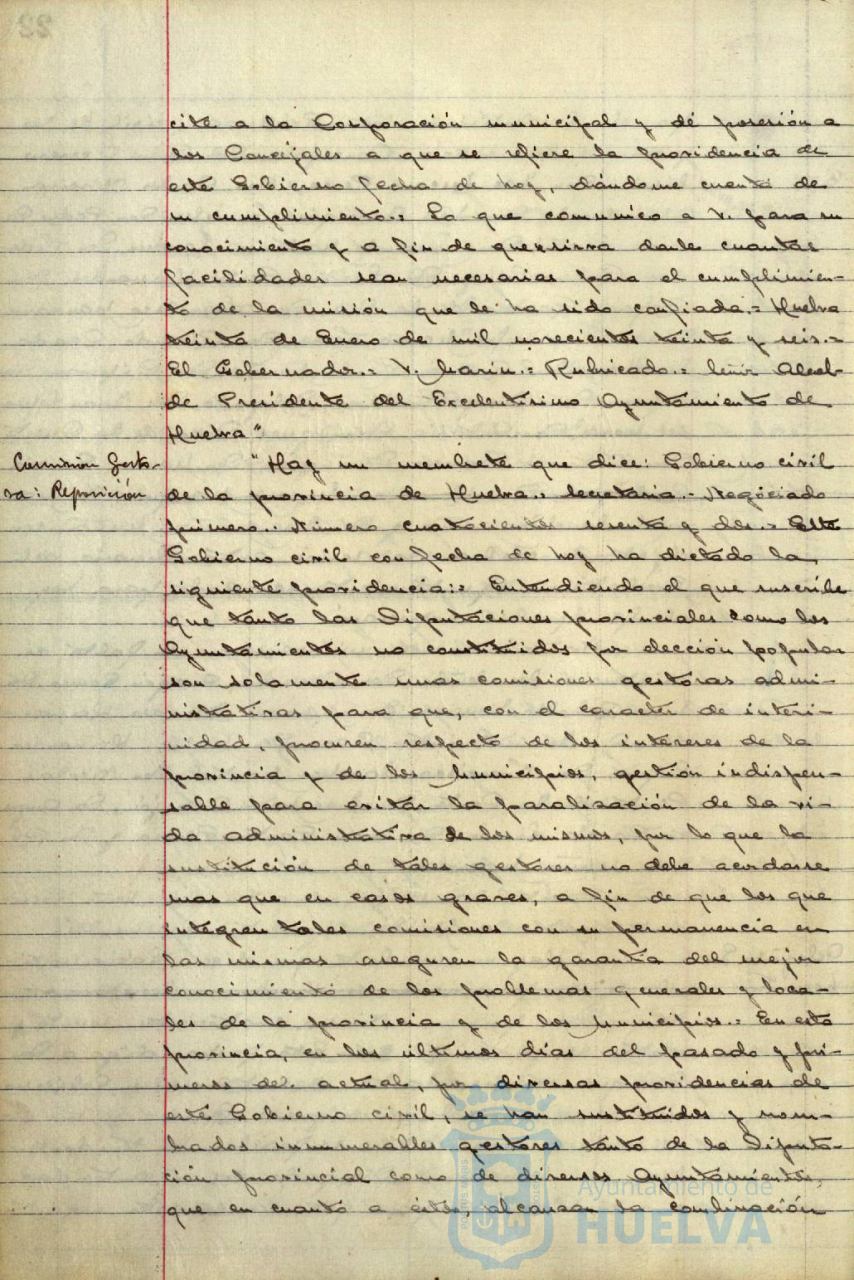 cite a la Corporación municipal y dé posesión a
los Concejales a que se refiere la providencia de
este Gobierno fecha de hoy, dándome cuenta de
su cumplimiento.= Lo que comunico a V. para su
conocimiento y a fin de que sirva darle cuantas
facilidades sean necesarias para el cumplimien-
to de la misión que le ha sido confiada.= Huelva
treinta de Enero de mil novecientos treinta y seis.=
El Gobernador.= V. Marín.= Rubricado.= Señor Alcal-
de Presidente del Excelentísimo Ayuntamiento de
Huelva"
Comisión Gesto-
ra: Reposición
"Hay un membrete que dice: Gobierno civil
de la provincia de Huelva.= Secretaria.- Negociado
primero.- Número cuatrocientos sesenta y dos.= Este
Gobierno civil con fecha de hoy ha dictado la
siguiente providencia:= Entendiendo el que suscribe
que tanto las Diputaciones provinciales como los
Ayuntamientos no constituidos por elección popular
son solamente unas comisiones gestoras admi-
nistrativas para que, con el carácter de interi-
nidad, procuren respecto de los intereses de la
provincia y de los Municipios, gestión indispen-
sable para evitar la paralización de la vi-
da administrativa de los mismos, por lo que la
sustitución de tales gestores no debe acordarse
mas que en casos graves, a fin de que los que
integren tales comisiones con su permanencia en
las mismas aseguren la garantía del mejor
conocimiento de los problemas generales y loca-
les de la provincia y de los Municipios.= En esta
provincia, en los últimos días del pasado y pri-
meros del actual, por diversas providencias de
este Gobierno civil, se han sustituidos y nom-
brados innumerables gestores tanto de la Diputa-
ción provincial como de diversos Ayuntamientos,
que en cuanto a éstos, alcanzan la combinación
Ayuntamiento de
HUELVA